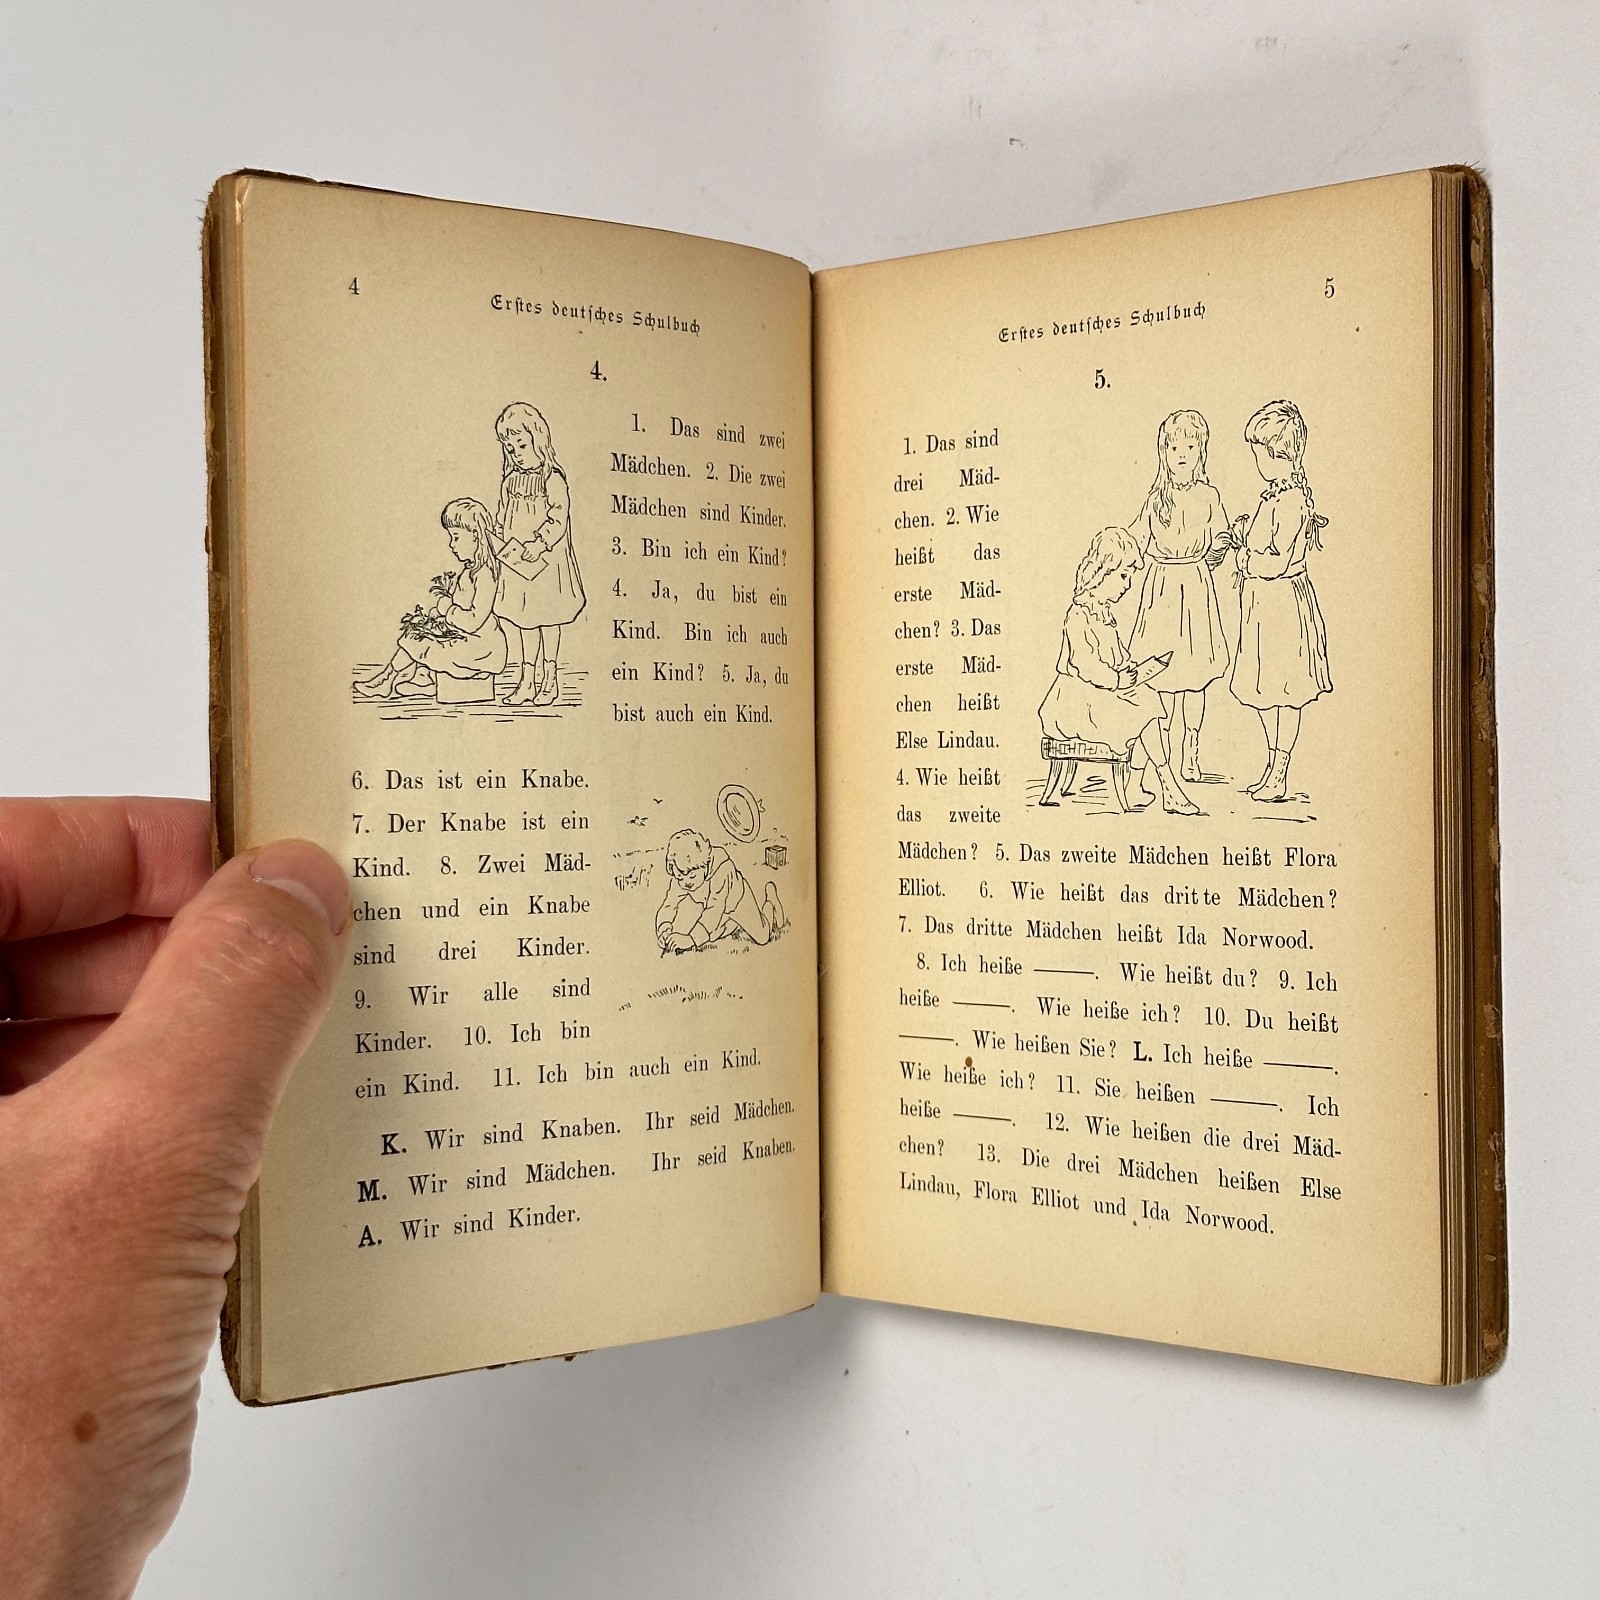 4
Erstes deutsches Schulbuch
4.
1. Das sind zwei
Mädchen. 2. Die zwei
Mädchen sind Kinder.
3. Bin ich ein Kind?
4. Ja, du bist ein
Kind. Bin ich auch
ein Kind? 5. Ja, du
bist auch ein Kind.
6. Das ist ein Knabe.
7. Der Knabe ist ein
Kind. 8. Zwei Mäd-
chen und ein Knabe
sind drei Kinder.
9. Wir alle sind
Kinder. 10. Ich bin
ein Kind. 11. Ich bin auch ein Kind.
K. Wir sind Knaben. Ihr seid Mädchen.
M. Wir sind Mädchen. Ihr seid Knaben.
A. Wir sind Kinder.
5
Erstes deutsches Schulbuch
5.
1. Das sind
drei Mäd-
chen. 2. Wie
heißt das
erste Mäd-
chen? 3. Das
erste Mäd-
chen heißt
Else Lindau.
4. Wie heißt
das zweite
Mädchen? 5. Das zweite Mädchen heißt Flora
Elliot. 6. Wie heißt das dritte Mädchen?
7. Das dritte Mädchen heißt Ida Norwood.
8. Ich heiße ———. Wie heißt du? 9. Ich
heiße ———. Wie heiße ich? 10. Du heißt
———. Wie heißen Sie? L. Ich heiße ———.
Wie heiße ich? 11. Sie heißen ———. Ich
heiße ———. 12. Wie heißen die drei Mäd-
chen? 13. Die drei Mädchen heißen Else
Lindau, Flora Elliot und Ida Norwood.